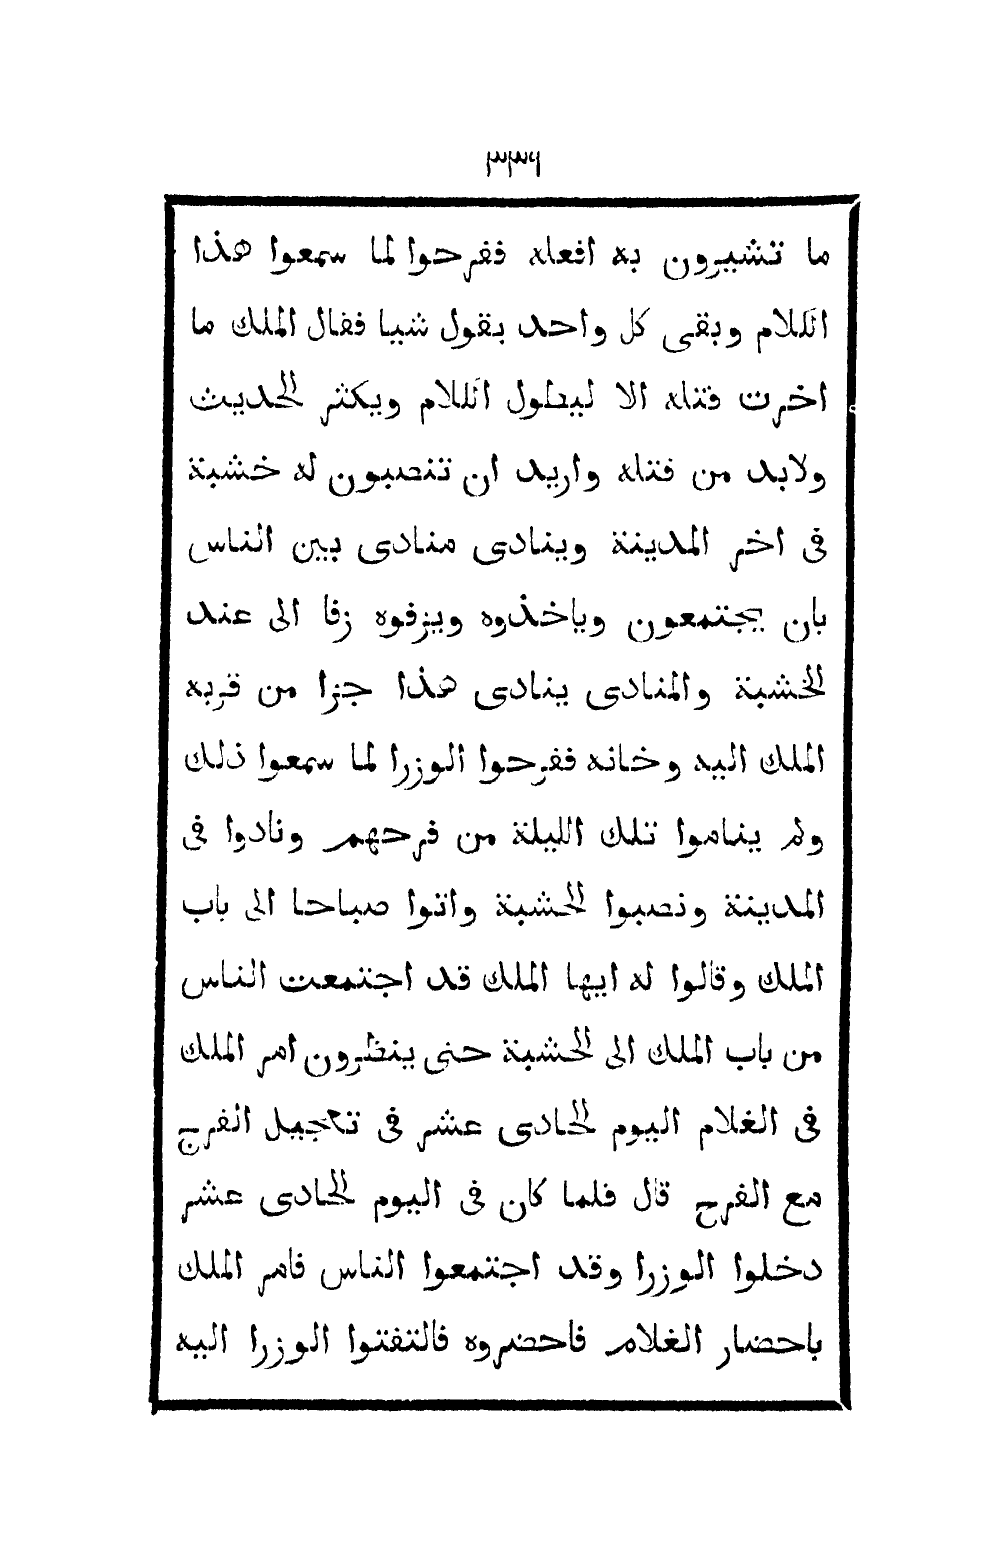 ٣٣٦
ما تشيرون به افعله ففرحوا لما سمعوا هذا
الكلام وبقى كل واحد يقول شيا فقال الملك ما
اخرت قتله الا ليطول الكلام ويكثر الحديث
ولابد من قتله واريد ان تنصبون له خشبة
فى اخر المدينة وينادى منادى بين الناس
بان يجتمعون وياخذوه ويزفوه زفا الى عند
الخشبة والمنادى ينادى هذا جزا من قربه
الملك اليه وخانه ففرحوا الوزرا لما سمعوا ذلك
ولم يناموا تلك الليلة من فرحهم ونادوا فى
المدينة ونصبوا الخشبة واتوا صباحا الى باب
الملك وقالوا له ايها الملك قد اجتمعت الناس
من باب الملك الى الخشبة حتى ينظرون امر الملك
فى الغلام اليوم الحادى عشر فى تعجيل الفرج
مع الفرج قال فلما كان فى اليوم الحادى عشر
دخلوا الوزرا وقد اجتمعوا الناس فامر الملك
باحضار الغلام فاحضروه فالتفتوا الوزرا اليه